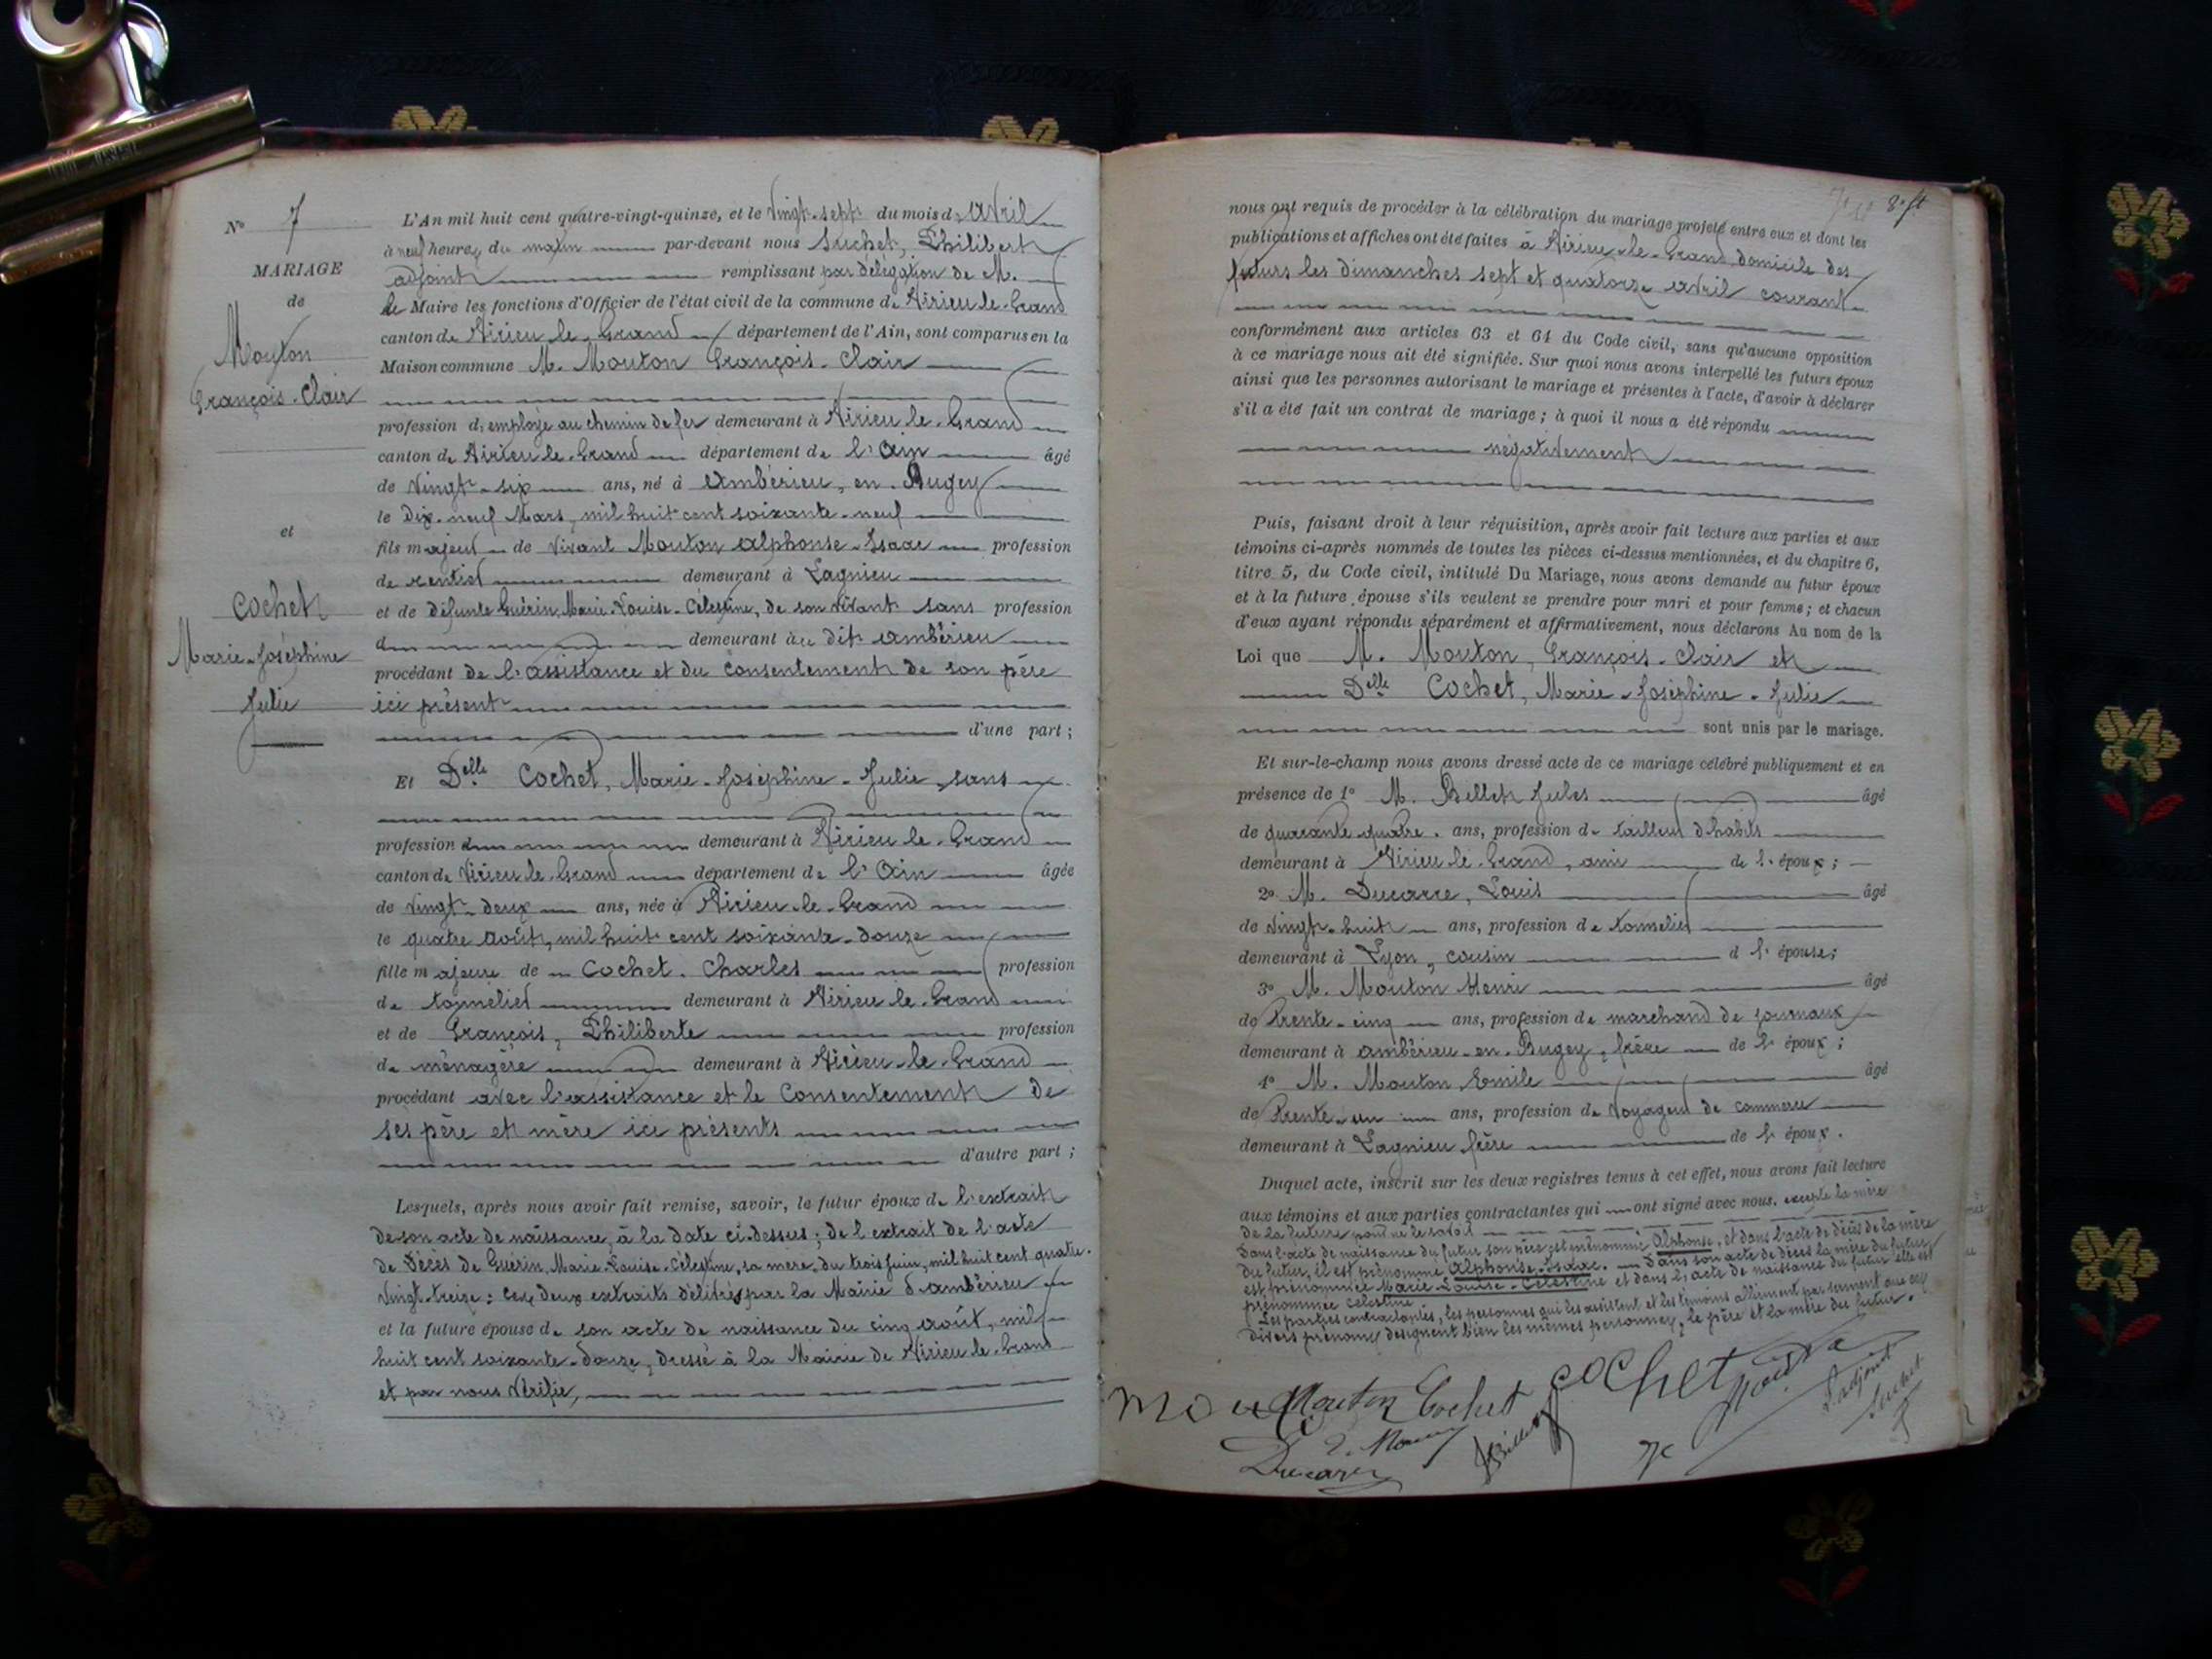 N° 7
MARIAGE
de
Mouton
François-Clair
et
Cochet
Marie-Joséphine
Julie
L'An mil huit cent quatre-vingt-quinze, et le vingt-sept du mois d'Avril
à neuf heures du matin par-devant nous Suchet, Philibert
adjoint remplissant par délégation de M.
le Maire les fonctions d'Officier de l'état civil de la commune de Virieu-le-Grand
canton de Virieu-le-Grand département de l'Ain, sont comparus en la
Maison commune M. Mouton François-Clair
profession d'employé au chemin de fer demeurant à Virieu-le-Grand
canton de Virieu-le-Grand département de l'Ain âgé
de vingt-six ans, né à Ambérieu-en-Bugey
le dix-neuf Mars, mil huit cent soixante-neuf
fils majeur de vivant Mouton Alphonse-Isaac profession
de rentier demeurant à Lagnieu
et de défunte Guérin, Marie-Louise-Célestine, de son vivant sans profession
d demeurant au dit Ambérieu
procédant de l'assistance et du consentement de son père
ici présent
d'une part ;
Et Delle Cochet, Marie-Joséphine-Julie, sans
profession demeurant à Virieu-le-Grand
canton de Virieu-le-Grand département de l'Ain âgée
de vingt-deux ans, née à Virieu-le-Grand
le quatre août, mil huit cent soixante-douze
fille majeure de Cochet Charles profession
de tonnelier demeurant à Virieu-le-Grand
et de François, Philiberte profession
de ménagère demeurant à Virieu-le-Grand
procédant avec l'assistance et le consentement de
ses père et mère ici présents
d'autre part ;
Lesquels, après nous avoir fait remise, savoir, le futur époux de l'extrait
de son acte de naissance, à la date ci-dessus ; de l'extrait de l'acte
de Décès de Guérin, Marie-Louise-Célestine, sa mère, du trois juin, mil huit cent quatre-
vingt-treize ; ces deux extraits délivrés par la Mairie d'Ambérieu
et la future épouse de son acte de naissance du cinq août, mil
huit cent soixante-douze, dressé à la Mairie de Virieu-le-Grand
et par nous vérifié,
8 ft
nous ont requis de procéder à la célébration du mariage projeté entre eux et dont les
publications et affiches ont été faites à Virieu-le-Grand domicile des
futurs les dimanches sept et quatorze avril courant
conformément aux articles 63 et 64 du Code civil, sans qu'aucune opposition
à ce mariage nous ait été signifiée. Sur quoi nous avons interpellé les futurs époux
ainsi que les personnes autorisant le mariage et présentes à l'acte, d'avoir à déclarer
s'il a été fait un contrat de mariage ; à quoi il nous a été répondu
négativement
Puis, faisant droit à leur réquisition, après avoir fait lecture aux parties et aux
témoins ci-après nommés de toutes les pièces ci-dessus mentionnées, et du chapitre 6,
titre 5, du Code civil, intitulé Du Mariage, nous avons demandé au futur époux
et à la future épouse s'ils veulent se prendre pour mari et pour femme ; et chacun
d'eux ayant répondu séparément et affirmativement, nous déclarons Au nom de la
Loi que M. Mouton, François-Clair et
Delle Cochet, Marie-Joséphine-Julie
sont unis par le mariage.
Et sur-le-champ nous avons dressé acte de ce mariage célébré publiquement et en
présence de 1° M. Billet Jules âgé
de quarante quatre ans, profession de tailleur d'habits
demeurant à Virieu-le-Grand, ami de l'époux ;
2° M. Ducarre, Louis âgé
de vingt-huit ans, profession de tonnelier
demeurant à Lyon, cousin de l'épouse ;
3° M. Mouton Henri âgé
de trente-cinq ans, profession de marchand de journaux
demeurant à Ambérieu-en-Bugey, frère de l'époux ;
4° M. Mouton, Emile âgé
de trente-un ans, profession de voyageur de commerce
demeurant à Lagnieu frère de l'époux.
Duquel acte, inscrit sur les deux registres tenus à cet effet, nous avons fait lecture
aux témoins et aux parties contractantes qui ont signé avec nous. excepté la mère
de la future pour ne le savoir
Dans l'acte de naissance du futur son père est prénommé Alphonse, et dans l'acte de décès de la mère
du futur, il est prénommé Alphonse-Isaac. Dans son acte de décès la mère du futur
est prénommée Marie-Louise-Célestine et dans l'acte de naissance du futur elle est
prénommée Célestine
Les parties contractantes, les personnes qui les assistent et les témoins affirment par serment que ces
divers prénoms désignent bien les mêmes personnes, le père et la mère du futur.
Mouton Cochet Cochet
L'adjoint
Suchet
Billet
Ducarre